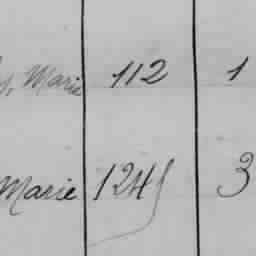 Marie 112 1
Marie 124 3